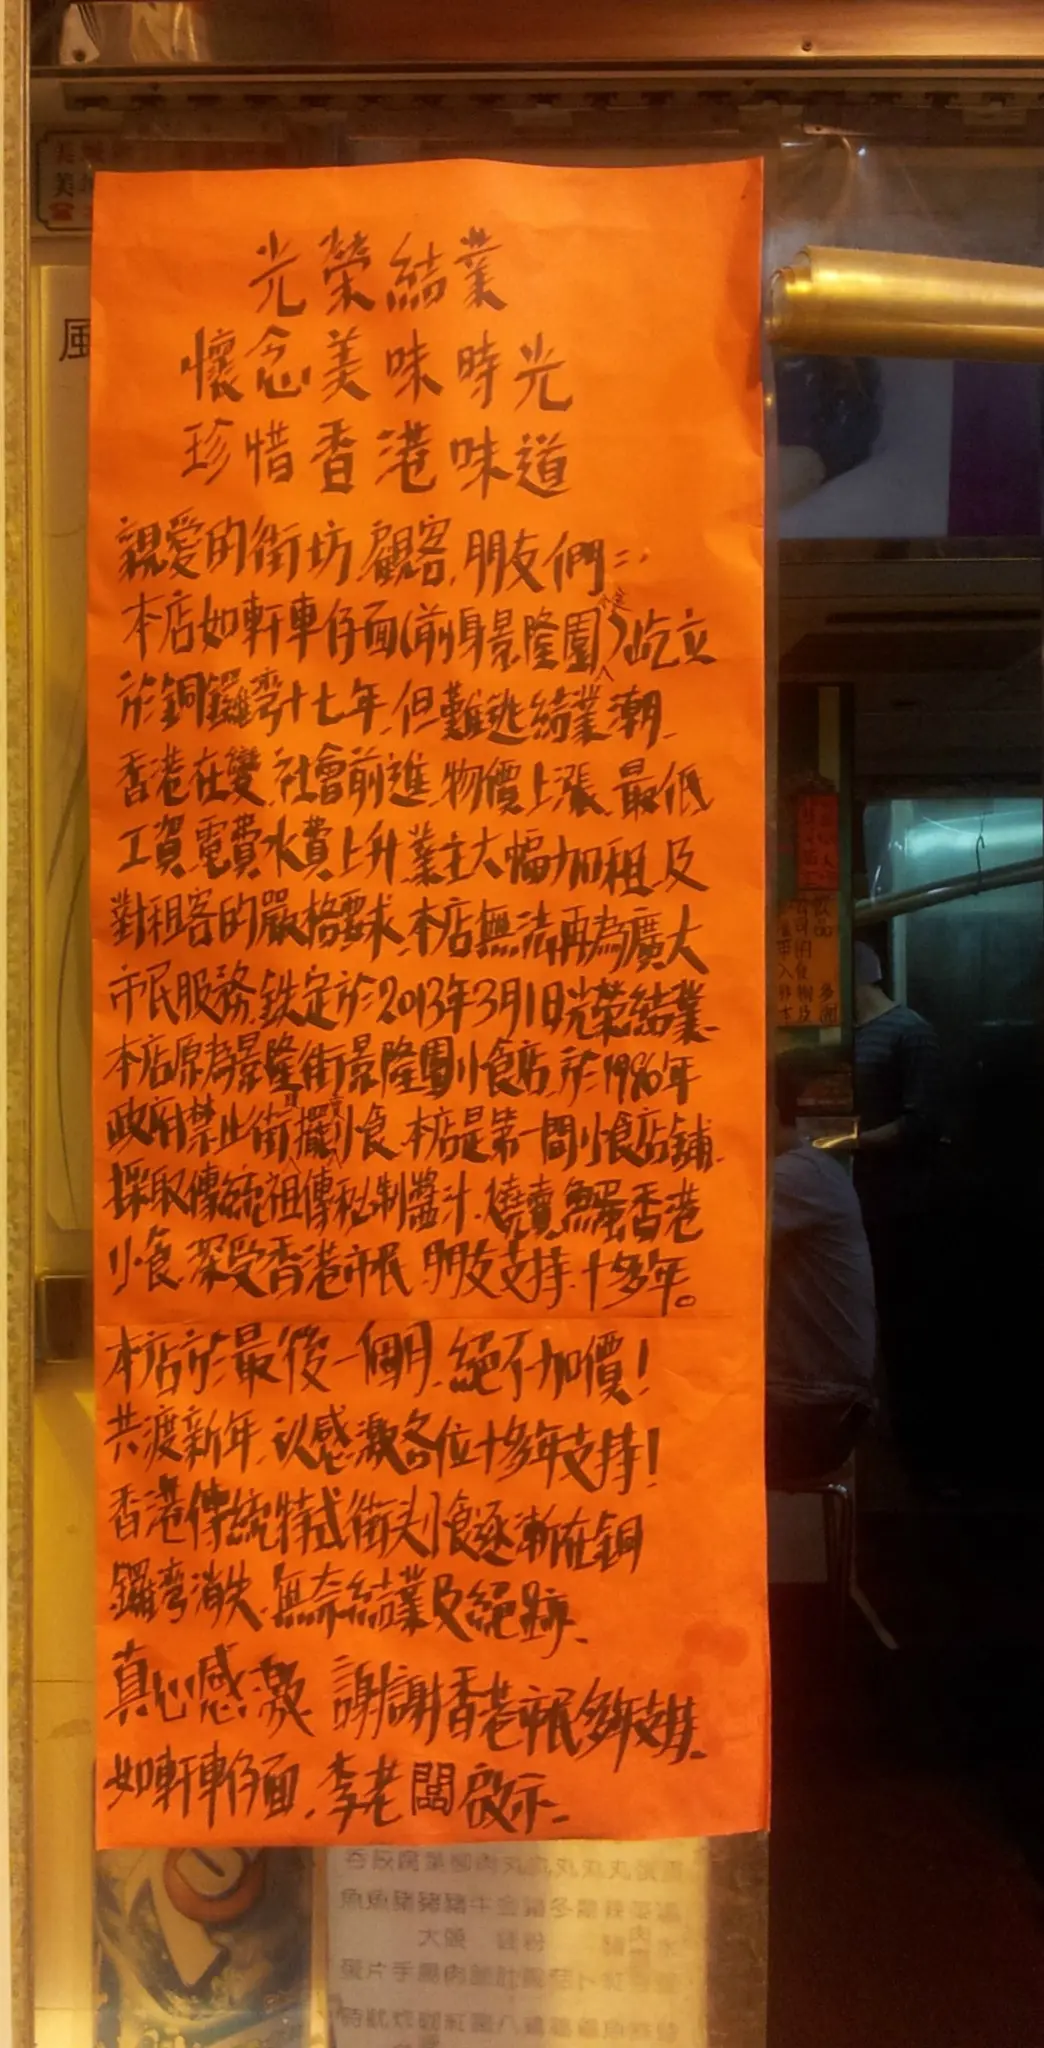 光榮結業
懷念美味時光
珍惜香港味道
親愛的街坊、顧客、朋友們：
本店如軒車仔面(前身景隆園)屹立
於銅鑼灣十七年，但難逃結業潮。
香港在變，社會前進，物價上漲，最低
工資，電費水費上升，業主大幅加租及
對租客的嚴格要求，本店無法再為廣大
市民服務，鉄定於2013年3月1日光榮結業。
本店原為景隆街景隆園小食店，於1996年
政府禁止街擺賣小食，本店是第一間小食店舖。
採取傳統祖傳秘制醬汁，燒賣魚蛋香港
小食，深受香港市民，朋友支持，十多年。
本店於最後一個月，絕不加價！
共渡新年，以感激各位十多年支持！
香港傳統特式街头小食逐漸在銅
鑼灣消失，無奈結業及絕跡。
真心感激，謝謝香港市民多年支持。
如軒車仔面，李老闆啟示。
風